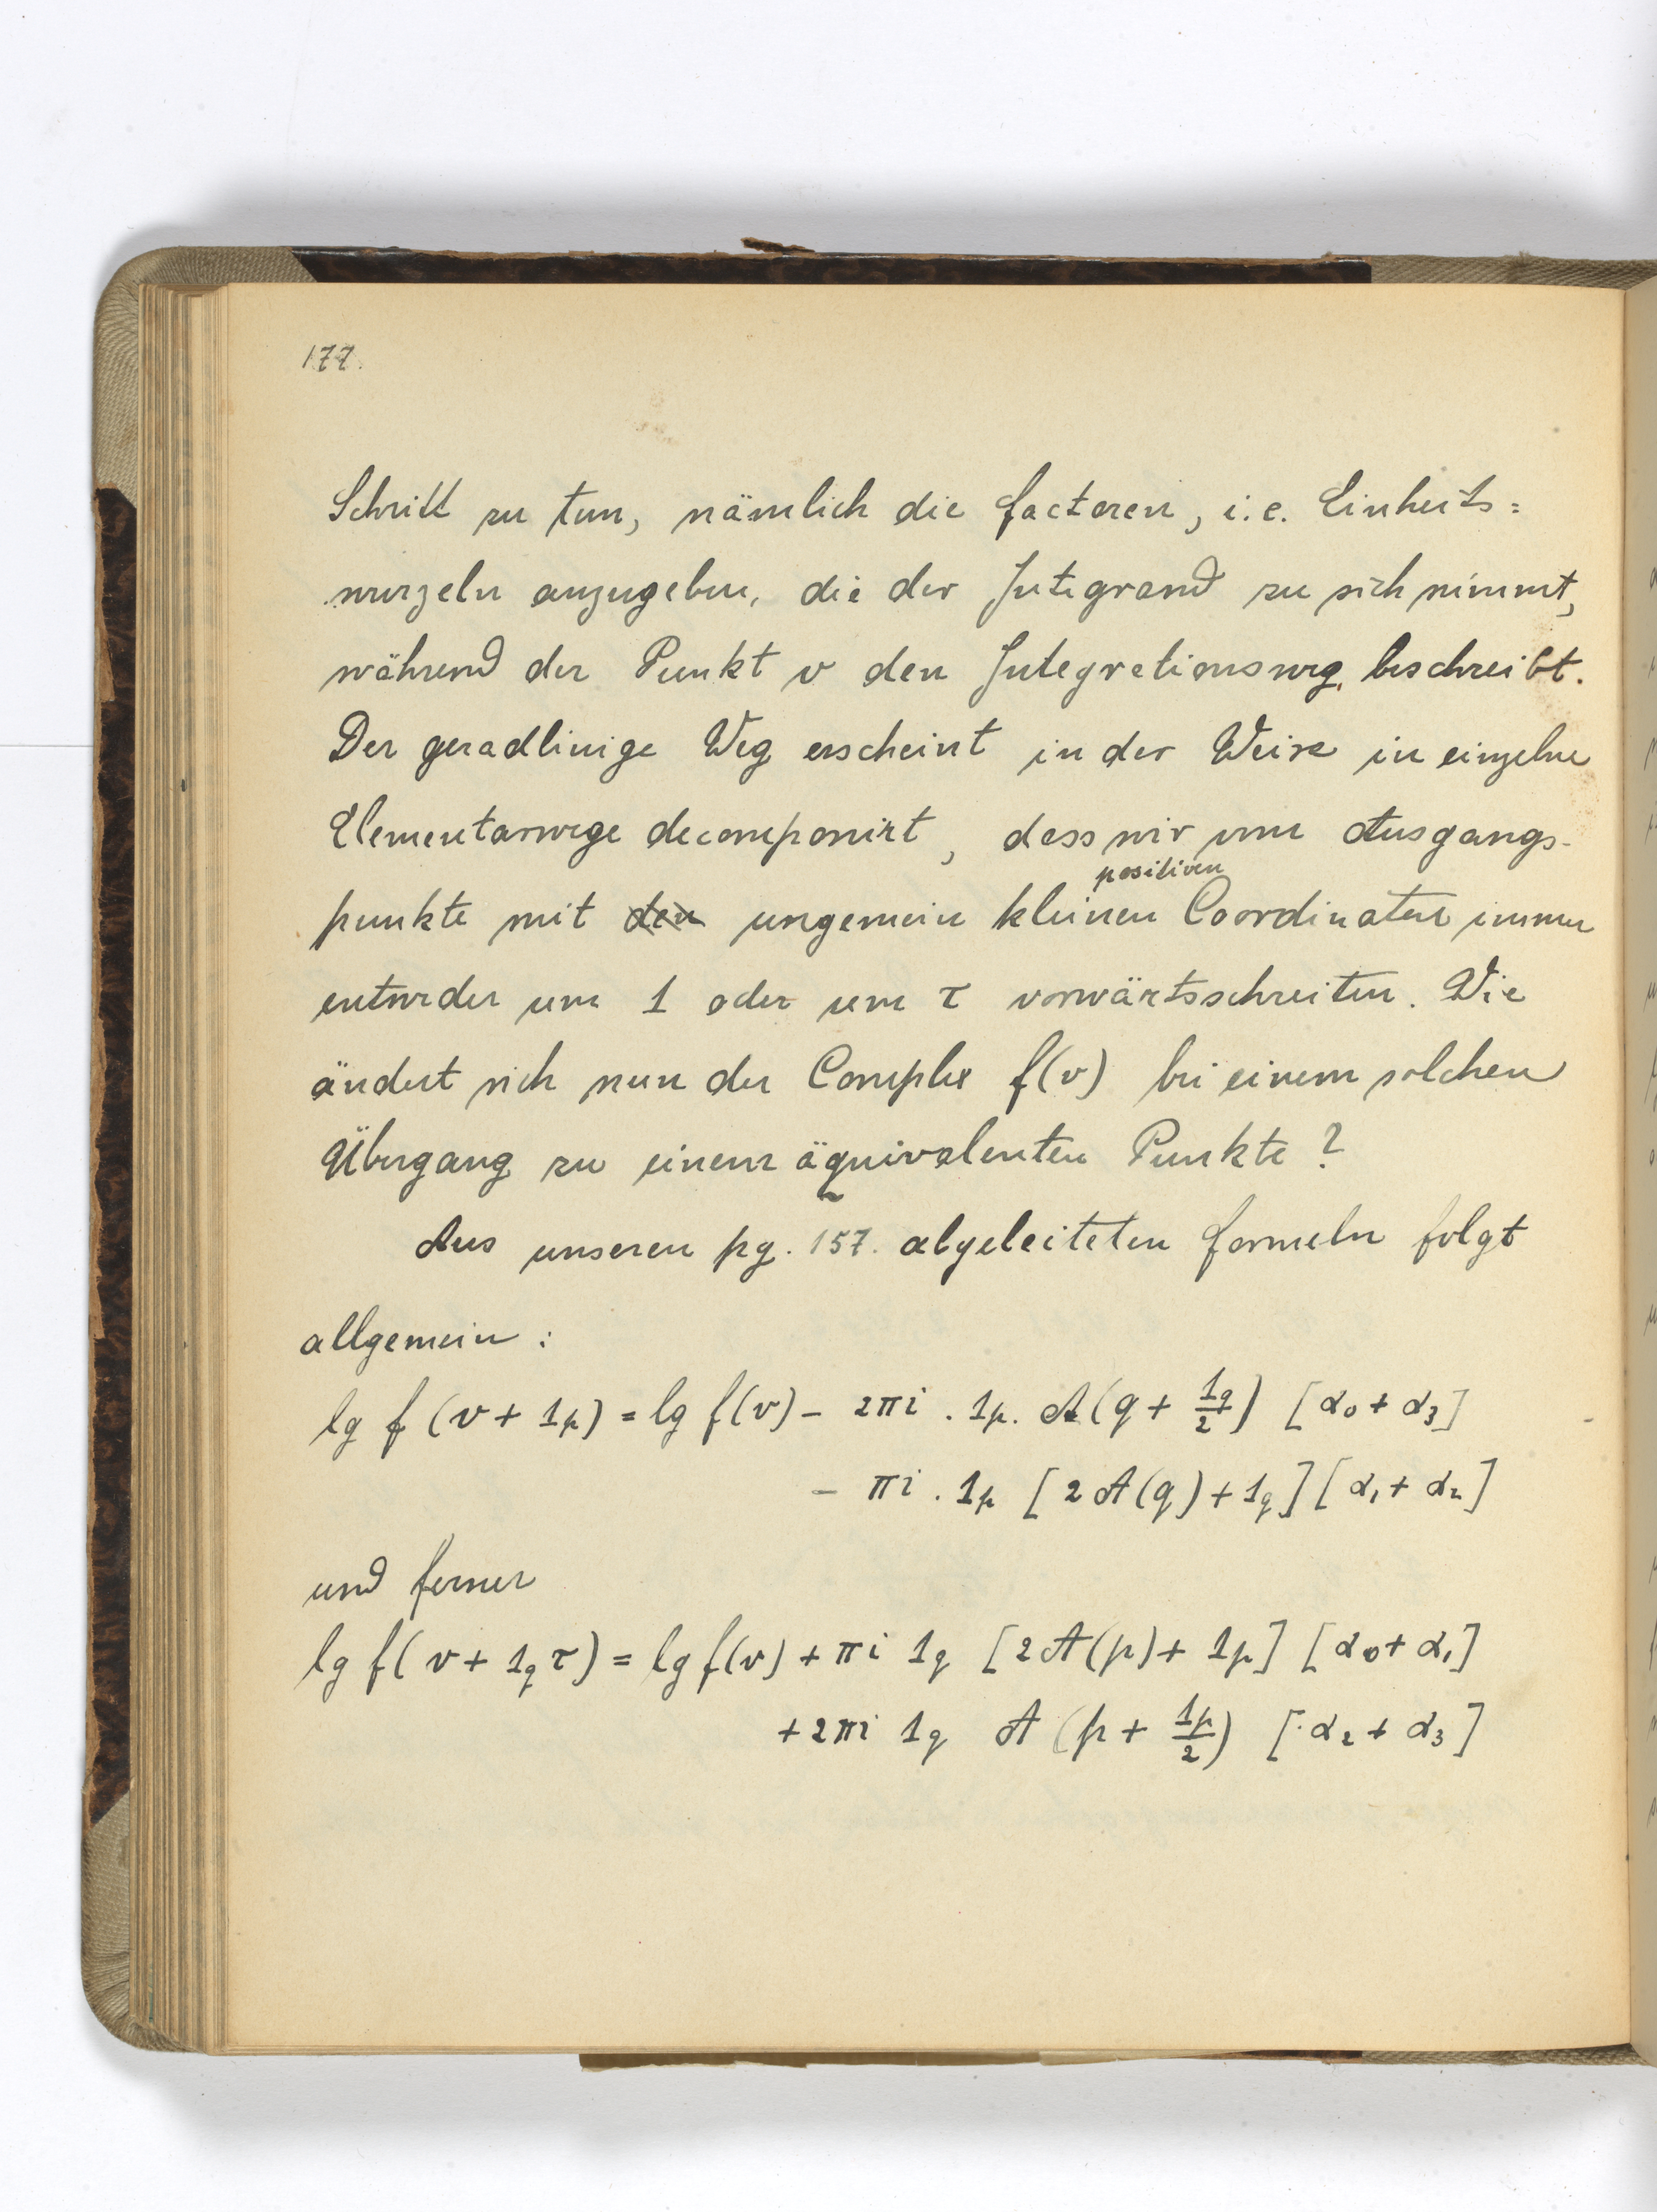 177.
Schritt zu tun, nämlich die Factoren, i.e. Einheits=
wurzeln anzugeben, die der Integrand zu sich nimmt,
während der Punkt v den Integrationsweg beschreibt.
Der geradlinige Weg erscheint in der Weise in einzelne
Elementarwege decomponirt, dass wir vom Ausgangs-
positiven
punkte mit den ungemein kleinen Coordinaten immer
entweder um 1 oder um τ vorwärtsschreiten. Wie
ändert sich nun der Complex f(v) bei einem solchen
Übergang zu einem äquivalenten Punkte?
Aus unseren pg. 157. abgeleiteten Formeln folgt
allgemein:
lg f (v + 1_p) = lg f(v) - 2πi . 1_p . A(q + 1_q/2) [α₀ + α₃]
- πi . 1_p [2 A(q) + 1_q] [α₁ + α₂]
und ferner
lg f(v + 1_q τ) = lg f(v) + πi 1_q [2 A(p) + 1_p] [α₀ + α₁]
+ 2πi 1_q A (p + 1_p/2) [α₂ + α₃]